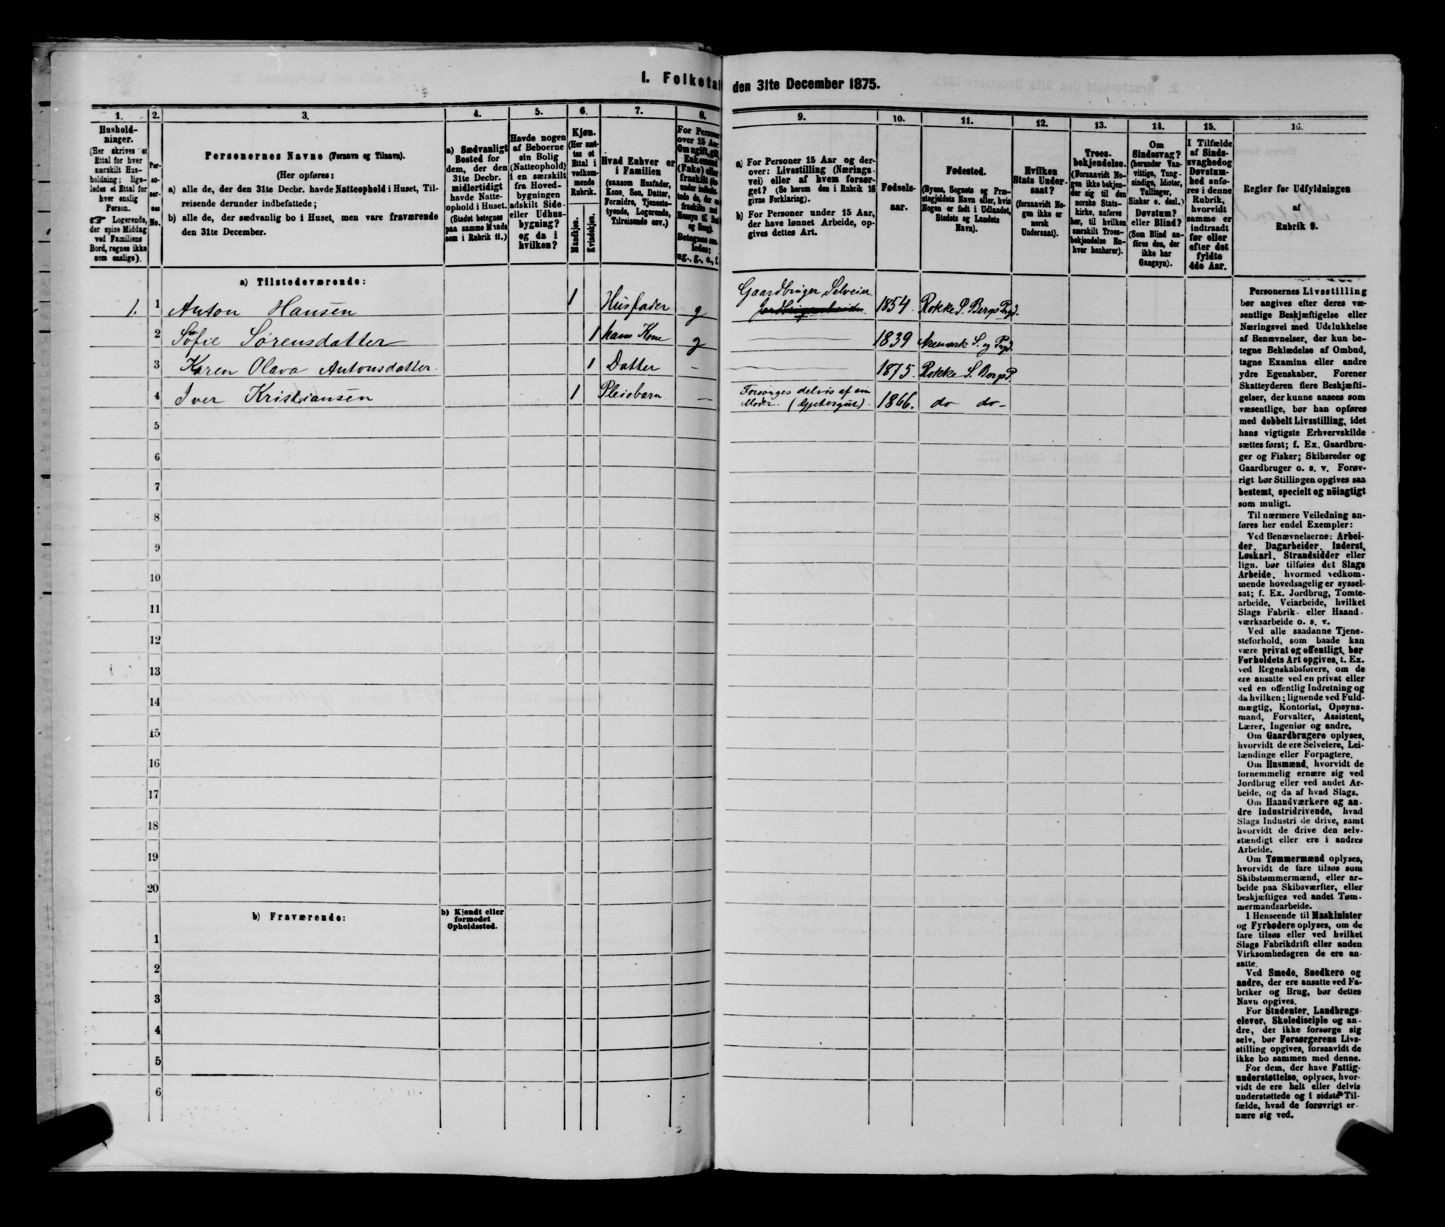 I. Folketal den 31te December 1875.
1.
Hushold-
ninger.
(Her skrives et
Ettal for hver
særskilt Hus-
holdning; lige-
ledes et Ettal for
hver enslig
Person.
☞ Logerende,
der spise Middag
ved Familiens
Bord, regnes ikke
som enslige).
2.
Per-
so-
ner-
nes
No.
3.
Personernes Navne (Fornavn og Tilnavn).
(Her opføres:
a) alle de, der den 31te Decbr. havde Natteophold i Huset, Til-
reisende derunder indbefattede;
b) alle de, der sædvanlig bo i Huset, men vare fraværende
den 31te December.
4.
a) Sædvanligt
Bosted for
dem, der den
31te Decbr.
midlertidigt
havde Natte-
ophold i Huset.
(Stedet betegnes
paa samme Maade
som i Rubrik 11.)
5.
Havde nogen
af Beboerne
sin Bolig
(Natteophold)
i en særskilt
fra Hoved-
bygningen
adskilt Side-
eller Udhus-
bygning?
og da i
hvilken?
6.
Kjøn.
(Her sæt-
tes et
Ettal i
vedkom-
mende
Rubrik.
Mandkjøn.
Kvindekjøn.
7.
Hvad Enhver er
i Familien
(saasom Husfader,
Kone, Søn, Datter,
Forældre, Tjeneste-
tyende, Logerende,
Tilreisende osv.)
8.
For Personer
over 15 Aar
9.
a) For Personer 15 Aar og der-
over: Livsstilling (Nærings-
vei) eller af hvem forsør-
get? (Se herom den i Rubrik 16
givne Forklaring).
b) For Personer under 15 Aar,
der have lønnet Arbeide, op-
gives dettes Art.
10.
Fødsels-
aar.
11.
Fødested.
(Byens, Sognets og Præ-
stegjeldets Navn eller, hvis
Nogen er født i Udlandet,
Stedets og Landets
Navn).
12.
Hvilken
Stats Under-
saat?
(foraavidt No-
gen ikke er
norsk
Undersaat).
13.
Troes-
bekjendelse.
(Forsaavidt No-
gen ikke bekjen-
der sig til den
norske Stats-
kirke, anføres
her, til hvilken
særskilt Troes-
bekjendelse En-
hver henhører).
14.
Om
Sindssvag?
(herunder Van-
vittige, Tung-
sindige, Idioter,
Tullinger,
Sinker o. desl.)
Døvstum?
eller Blind?
(Som Blind an-
føres den, der
ikke har
Gangsyn).
15.
I Tilfælde
af Sinds-
svaghed og
Døvstum-
hed anfø-
res i denne
Rubrik,
hvorvidt
samme er
indtraadt
før eller
efter det
fyldte
4de Aar.
16.
Regler for Udfyldningen
af
Rubrik 9.
a) Tilstedeværende:
1. 1 Anton Hansen 1 Husfader g Gaardbruger, Selveier 1854. Rokke S. Bergs Prgd.
2 Sofie Sørensdatter 1 hans Kone g 1839 Aremark S. og Prgd.
3 Karen Olava Antonsdatter. 1 Datter - 1875. Rokke S. Bergs P.
4 Iver Kristiansen 1 Pleiebarn - Forsørges delvis af sin
Moder. 1866. do do-
5
6
7
8
9
10
11
12
13
14
15
16
17
18
19
20
b) Fraværende:
b) Kjendt eller
formodet
Opholdssted.
1
2
3
4
5
6
Personernes Livsstilling
bør angives efter deres væ-
sentlige Beskjæftigelse eller
Næringsvei med Udelukkelse
af Benævnelser, der kun be-
tegne Beklædelse af Ombud,
tagne Examina eller andre
ydre Egenskaber. Forener
Skatteyderen flere Beskjæfti-
gelser, der kunne ansees som
væsentlige, bør han opføres
med dobbelt Livsstilling, idet
hans vigtigste Erhvervskilde
sættes først; f. Ex. Gaardbru-
ger og Fisker; Skibsreder og
Gaardbruger o. s. v. Forøv-
rigt bør Stillingen opgives saa
bestemt, specielt og nøiagtigt
som muligt.
Til nærmere Veiledning an-
føres her endel Exempler:
Ved Benævnelserne: Arbei-
der, Dagarbeider, Inderst,
Løskarl, Strandsidder eller
lign. bør tilføies det Slags
Arbeide, hvormed vedkom-
mende hovedsagelig er syssel-
sat; f. Ex. Jordbrug, Tomte-
arbeide, Veiarbeide, hvilket
Slags Fabrik- eller Haand-
værksarbeide o. s. v.
Ved alle saadanne Tjene-
steforhold, som baade kan
være privat og offentligt, bør
Forholdets Art opgives, t. Ex.
ved Regnskabsførere, om de
ere ansatte ved en privat eller
ved en offentlig Indretning og
da hvilken; lignende ved Fuld-
mægtig, Kontorist, Opsyns-
mand, Forvalter, Assistent,
Lærer, Ingeniør og andre.
Om Gaardbrugere oplyses,
hvorvidt de ere Selveiere, Lei-
lændinge eller Forpagtere.
Om Husmænd, hvorvidt de
fornemmelig ernære sig ved
Jordbrug eller ved andet Ar-
beide, og da af hvad Slags.
Om Haandværkere og an-
dre Industridrivende, hvad
Slags Industri de drive, samt
hvorvidt de drive den selv-
stændigt eller ere i andres
Arbeide.
Om Tømmermænd oplyses,
hvorvidt de fare tilsøs som
Skibstømmermænd, eller ar-
beide paa Skibsværfter, eller
beskjæftiges ved andet Tøm-
mermandsarbeide.
I Henseende til Maskinister
og Fyrbødere oplyses, om de
fare tilsøs eller ved hvilket
Slags Fabrikdrift eller anden
Virksomhedsgren de ere an-
satte.
Ved Smede, Snedkere og
andre, der ere ansatte ved Fa-
briker og Brug, bør dettes
Navn opgives.
For Studenter, Landbrugs-
elever, Skoledisciple og an-
dre, der ikke forsørge sig
selv, bør Forsørgerens Livs-
stilling opgives, forsaavidt de
ikke bo sammen med denne.
For dem, der have Fattig-
understøttelse, oplyses, hvor-
vidt de ere helt eller delvis
understøttede og i sidste Til-
fælde, hvad de forøvrigt er-
nære sig ved.